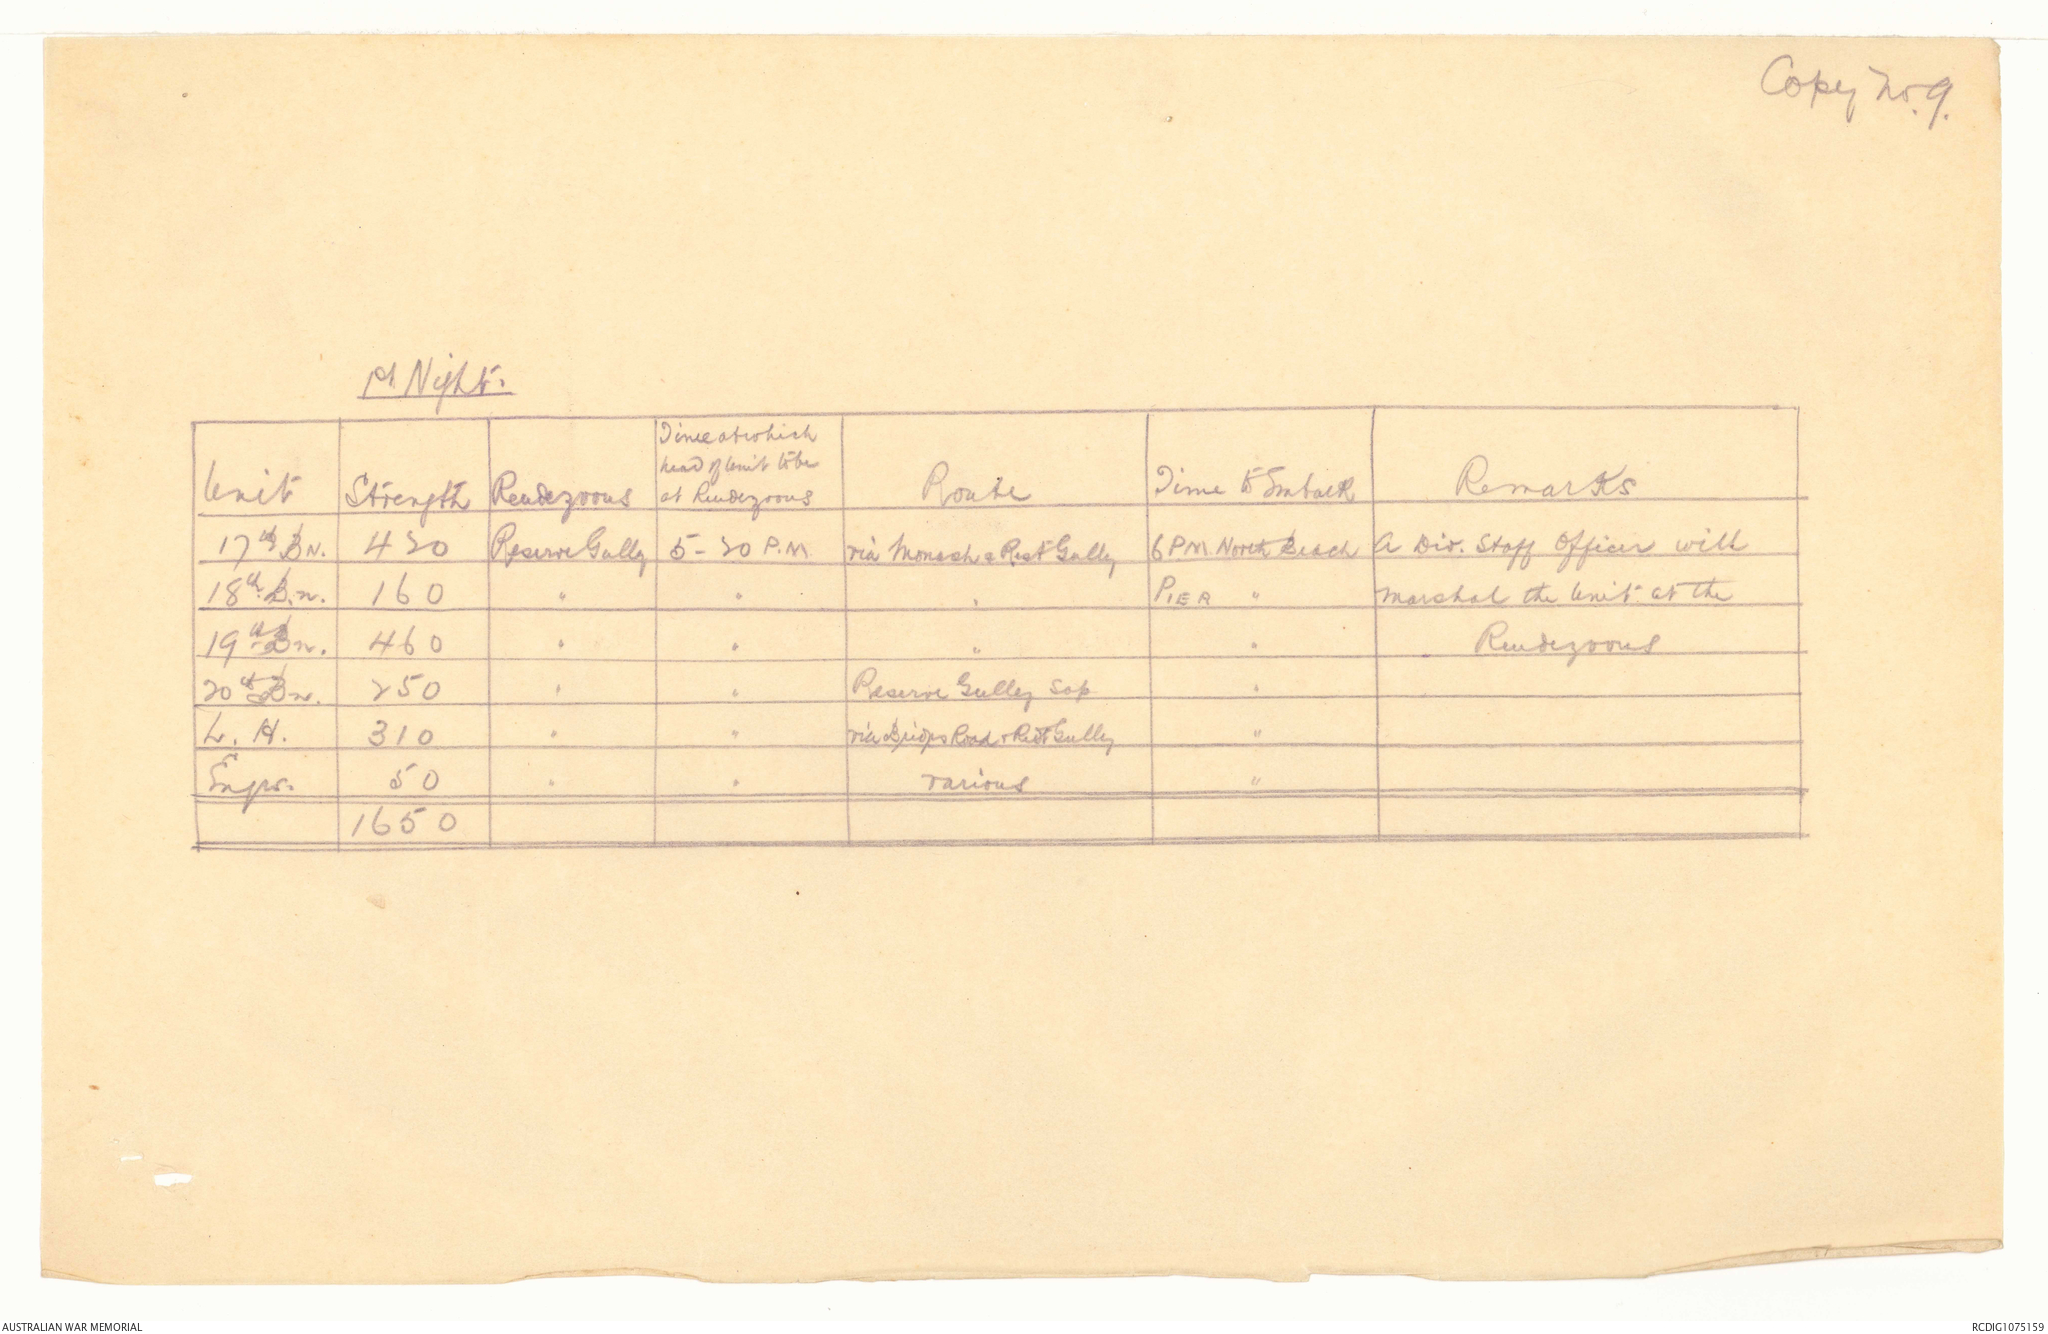 Copy No. 9.
1st Night.
Unit Strength Rendezvous Time at which head of Unit to be at Rendezvous Route Time to Embark Remarks
17th Bn. 420 Reserve Gully 5-20 P.M. via Monash & Rest Gully 6 P.M. North Beach A Div. Staff Officer will
18th Bn. 160 " " " PIER " marshal the Unit at the
19th Bn. 460 " " " " Rendezvous
20th Bn. 250 " " Reserve Gulley Sap "
L. H. 310 " " via Road & Rest Gully "
Engrs. 50 " " various "
1650
AUSTRALIAN WAR MEMORIAL
RCDIG1075159